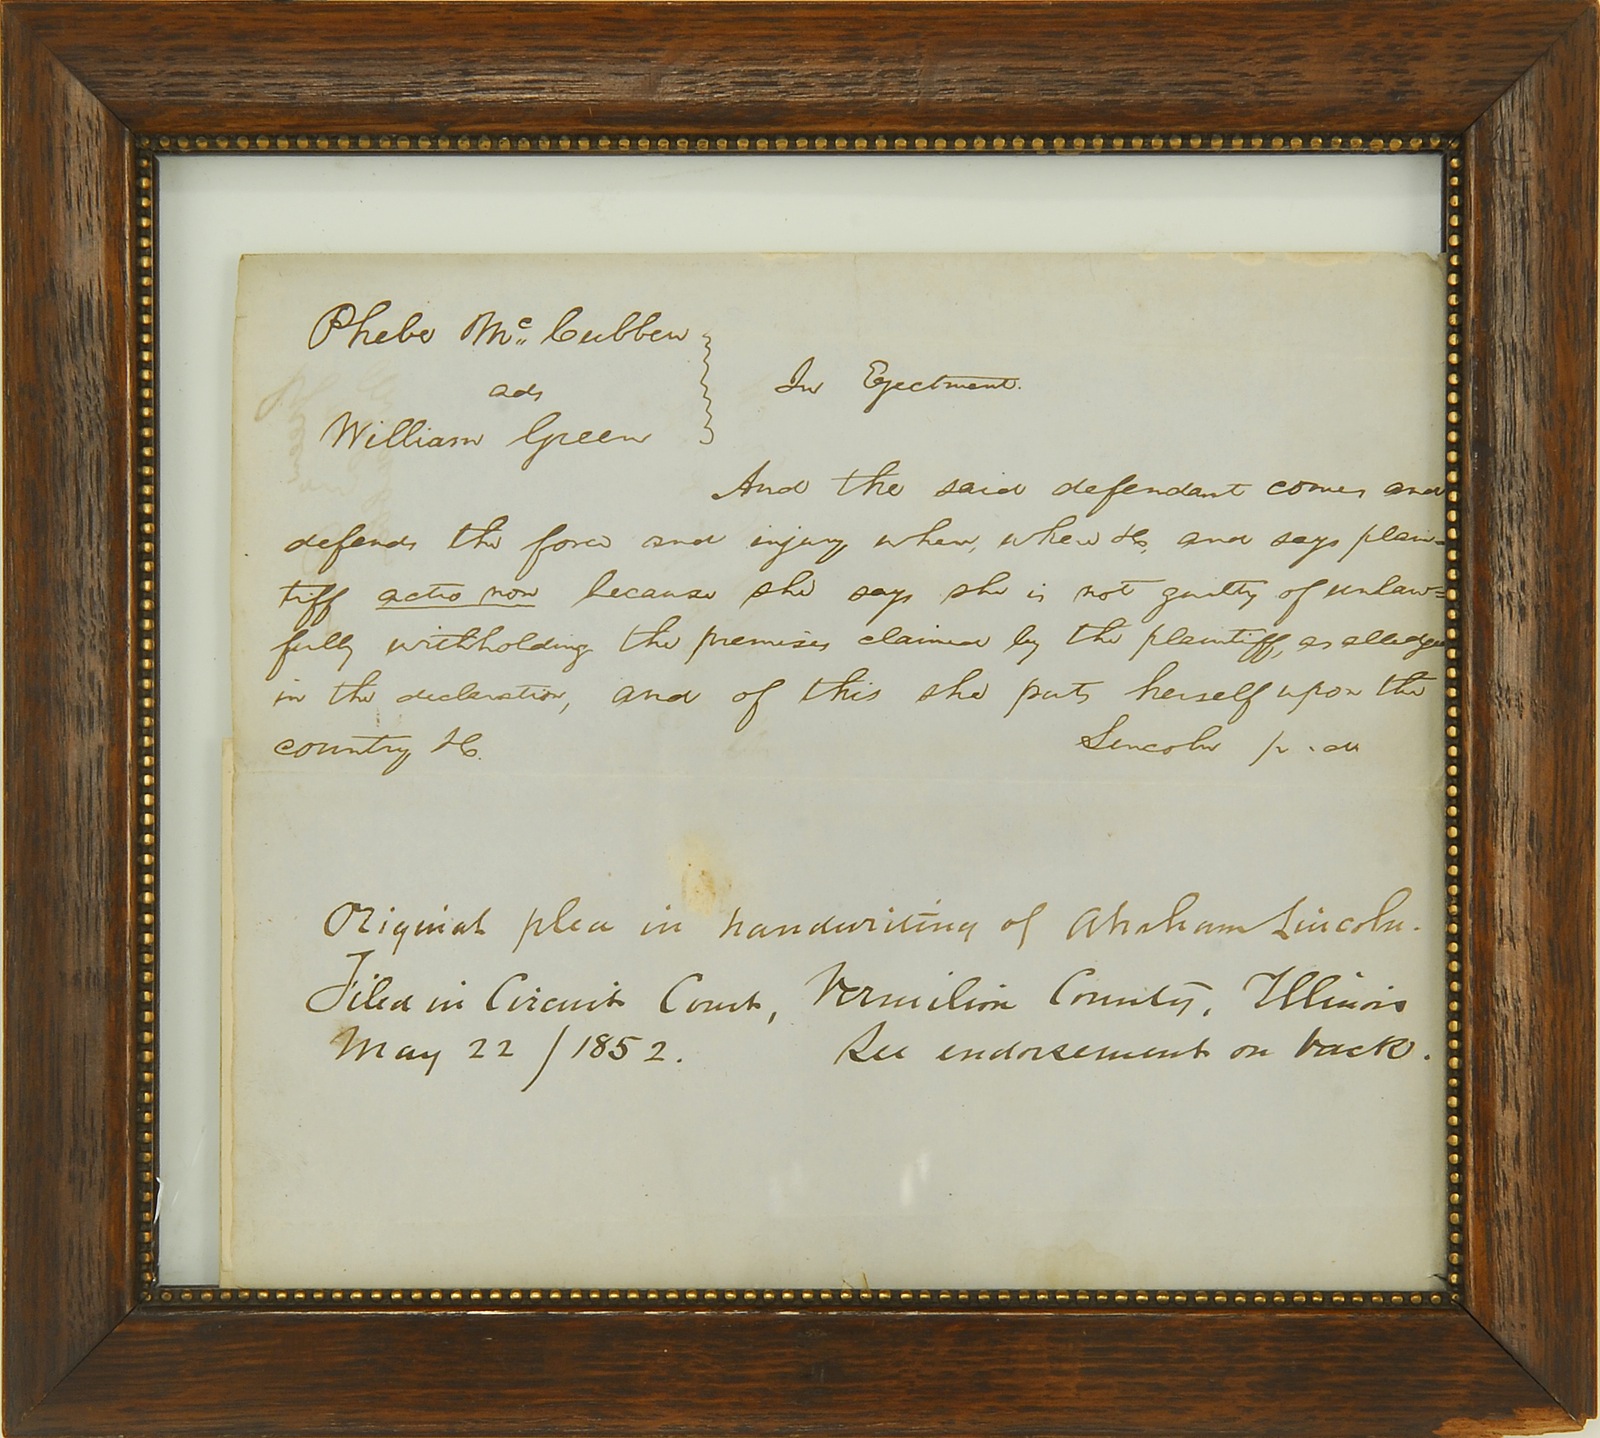 Phebe Mc. Cubben
ads
William Green
In Ejectment.
And the said defendant comes and
defends the force and injury, when, where &c, and says plain=
tiff actio non because she says she is not guilty of unlaw=
fully withholding the premises claimed by the plaintiff, as alledged
in the declaration, and of this she puts herself upon the
country &c.
Lincoln p.
Original plea in handwriting of Abraham Lincoln.
Filed in Circuit Court, Vermilion County, Illinois
May 22 / 1852. See endorsement on back.